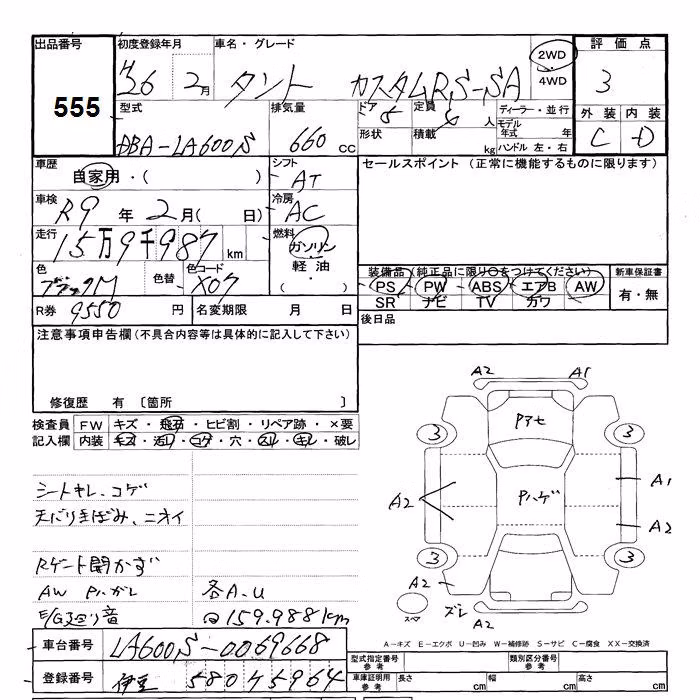 出品番号 初度登録年月 車名・グレード 2WD 4WD 評価点
555 H26 2月 タント カスタムRS-SA 3
型式 排気量 ドア 5 定員 4人 ディーラー・並行 外装 内装
DBA-LA600S 660 cc 形状 積載 kg モデル年式 年 C D
ハンドル 左・右
車歴 自家用・( ) シフト AT セールスポイント (正常に機能するものに限ります)
車検 R9年 2月( 日) 冷房 AC
走行 15万9千987 km 燃料 ガソリン
軽油・( )
色 ブラックM 色替 色コード X07 装備品(純正品に限り○をつけてください) 新車保証書
PS PW ABS エアB AW 有・無
SR ナビ TV カワ
R券 9550円 名変期限 月 日 後日品
注意事項申告欄(不具合内容等は具体的に記入して下さい)
修復歴 有 〔箇所 〕
検査員 FW キズ・飛石・ヒビ割・リペア跡・×要
記入欄 内装 キズ・汚れ・コゲ・穴・スレ・キレ・破レ
シートキレ、コゲ
天バリきばみ、ニオイ
Rゲート開かず
AW Pハガレ 各A.U
E/G廻り音 159.988km
A2 A1
Pアセ
3 3
Pハゲ
A2 A1
A2
3 3
A2
スペア ズレ A2
A-キズ E-エクボ U-凹み W-補修跡 S-サビ C-腐食 XX-交換済
車台番号 LA600S-0069668 型式指定番号 参考 類別区分番号 参考
登録番号 伊豆 580 45964 車庫証明用 参考 長さ cm 幅 cm 高さ cm